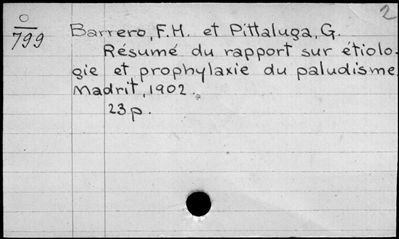 2
O
799
Barrero, F.H. et Pittaluga, G.
Résumé du rapport sur étiolo-
gie et prophylaxie du paludisme.
Madrit, 1902.
23 p.